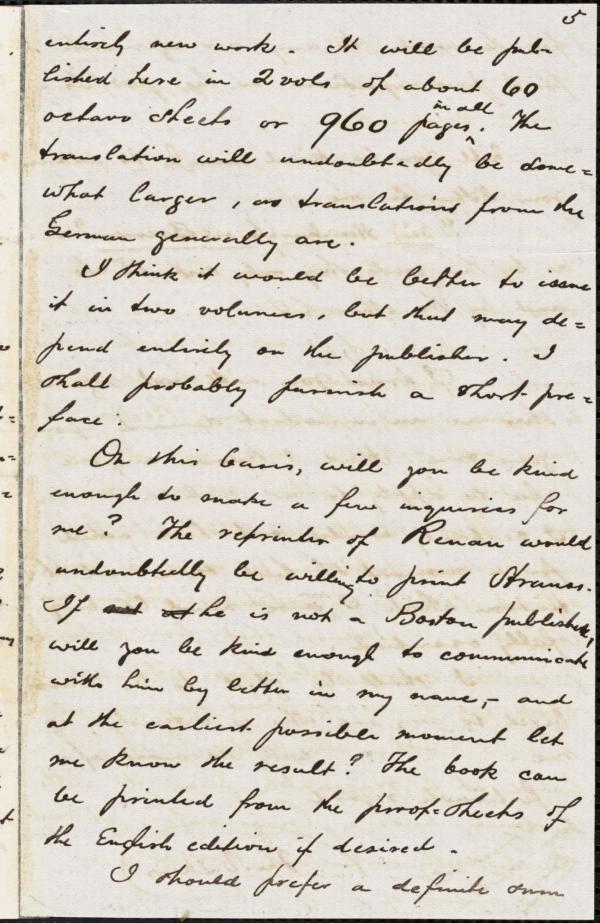 5
entirely new work. It will be pub-
lished here in 2 vols of about 60
octavo sheets or 960 pages in all. The
translation will undoubtedly be some=
what larger, as translations from the
German generally are.
I think it would be better to issue
it in two volumes, but that may de=
pend entirely on the publisher. I
shall probably furnish a short pre=
face.
On this basis, will you be kind
enough to make a few inquiries for
me? The reprinter of Renan would
undoubtedly be willing to print Strauss.
If he is not a Boston publisher,
will you be kind enough to communicate
with him by letter in my name, – and
at the earliest possible moment let
me know the result? The book can
be printed from the proof=sheets of
the English edition if desired.
I should prefer a definite sum